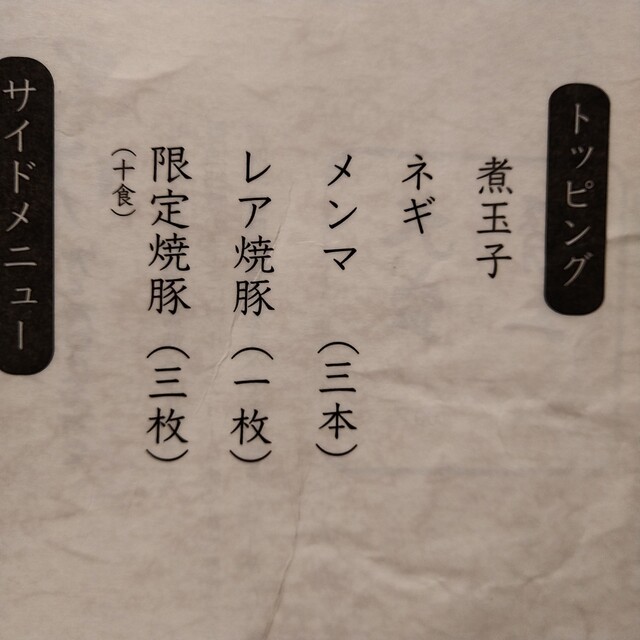 トッピング
煮玉子
ネギ
メンマ（三本）
レア焼豚（一枚）
限定焼豚（三枚）
（十食）
サイドメニュー